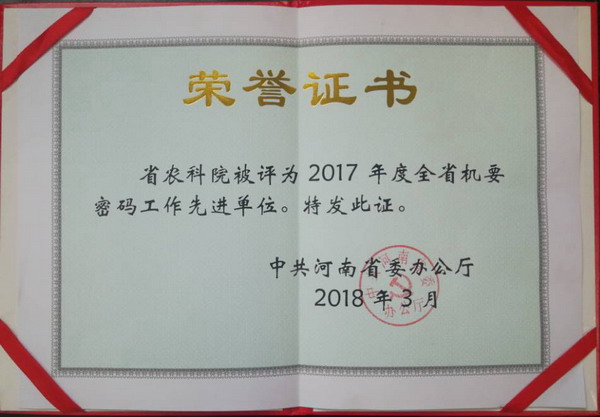 荣誉证书
省农科院被评为 2017 年度全省机要
密码工作先进单位。特发此证。
中共河南省委办公厅
2018 年 3 月
中共河南省委
办公厅